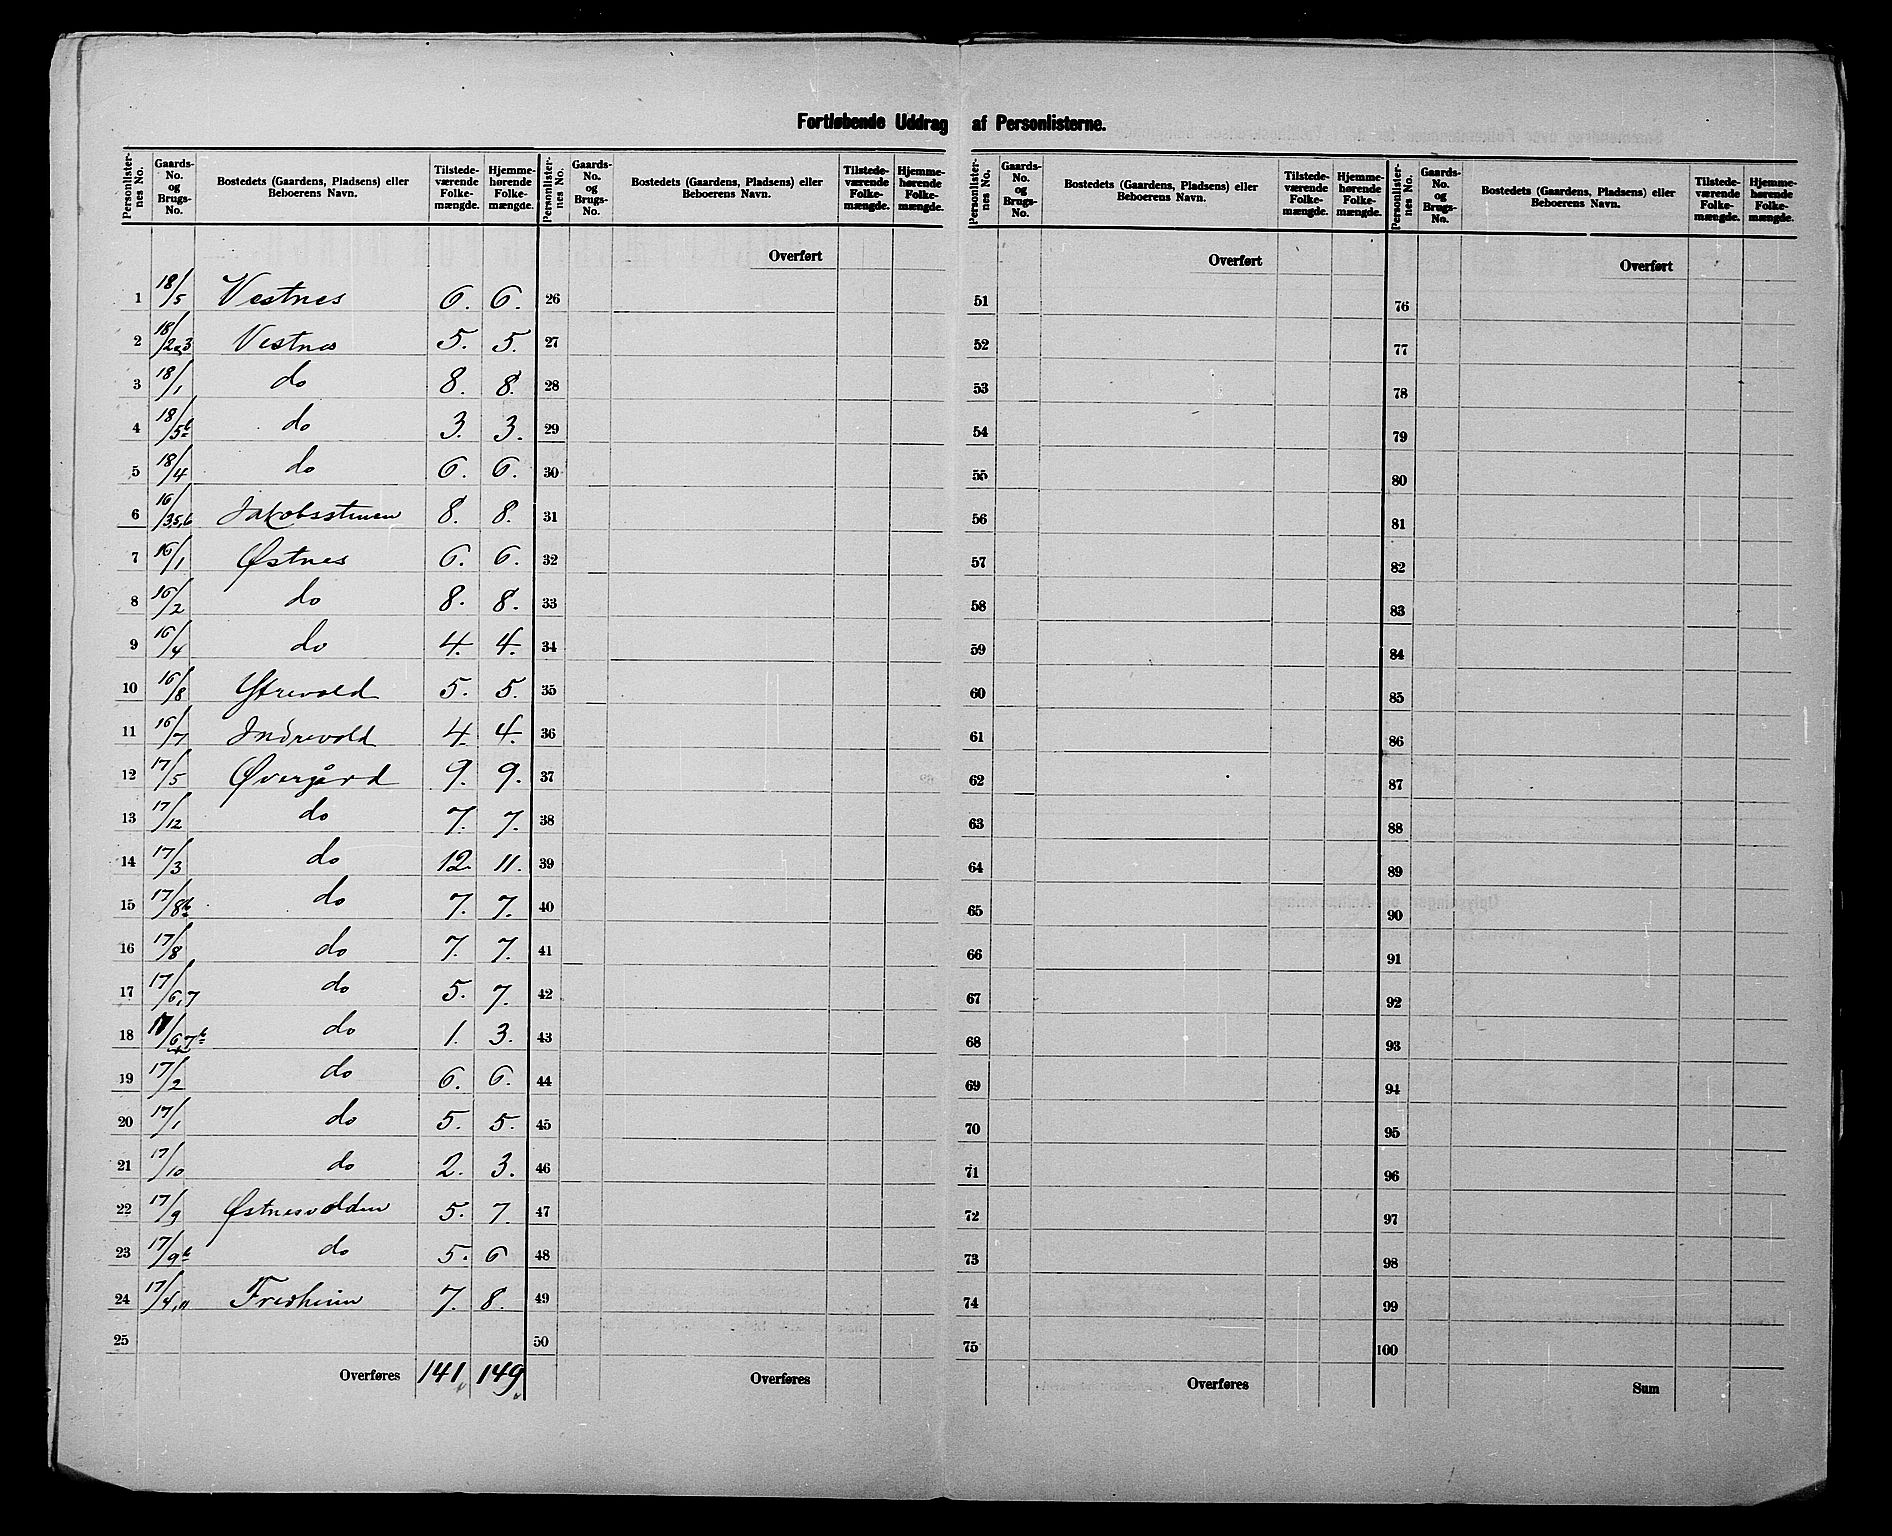 Fortløbende Uddrag af Personlisterne.
Personlisternes No. Gaards-No. og Brugs-No. Bostedets (Gaardens, Pladsens) eller Beboerens Navn. Tilstedeværende Folkemængde. Hjemmehørende Folkemængde.
Personlisternes No. Gaards-No. og Brugs-No. Bostedets (Gaardens, Pladsens) eller Beboerens Navn. Tilstedeværende Folkemængde. Hjemmehørende Folkemængde.
Personlisternes No. Gaards-No. og Brugs-No. Bostedets (Gaardens, Pladsens) eller Beboerens Navn. Tilstedeværende Folkemængde. Hjemmehørende Folkemængde.
Personlisternes No. Gaards-No. og Brugs-No. Bostedets (Gaardens, Pladsens) eller Beboerens Navn. Tilstedeværende Folkemængde. Hjemmehørende Folkemængde.
Overført Overført Overført
1 18/5 Vestnes 6. 6. 26 51 76
2 18/2,3 Vestnes 5. 5. 27 52 77
3 18/1 do 8. 8. 28 53 78
4 18/5b do 3. 3. 29 54 79
5 18/4 do 6. 6. 30 55 80
6 16/3,5,6 Jakobsstuen 8. 8. 31 56 81
7 16/1 Østnes 6. 6. 32 57 82
8 16/2 do 8. 8. 33 58 83
9 16/4 do 4. 4. 34 59 84
10 16/8 Ytrevold 5. 5. 35 60 85
11 16/7 Indrevold 4. 4. 36 61 86
12 17/5 Øvergård 9. 9. 37 62 87
13 17/12 do 7. 7. 38 63 88
14 17/3 do 12. 11. 39 64 89
15 17/8b do 7. 7. 40 65 90
16 17/8 do 7. 7. 41 66 91
17 17/6,7 do 5. 7. 42 67 92
18 17/6,7b do 1. 3. 43 68 93
19 17/2 do 6. 6. 44 69 94
20 17/1 do 5. 5. 45 70 95
21 17/10 do 2. 3. 46 71 96
22 17/9 Østnesvolden 5. 7. 47 72 97
23 17/9b do 5. 6 48 73 98
24 17/4,11 Fredheim 7. 8. 49 74 99
25 50 75 100
Overføres 141 149 Overføres Overføres Sum